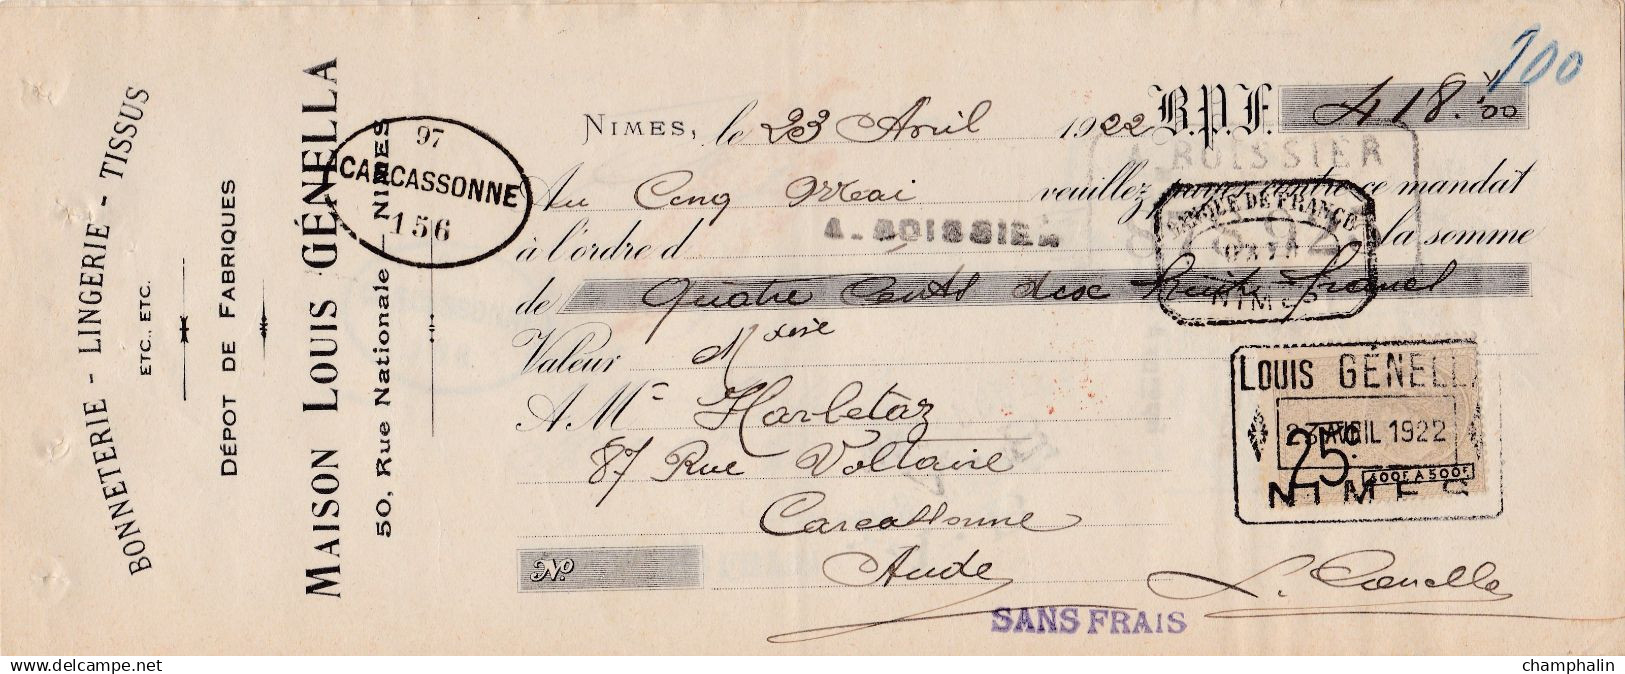 BONNETERIE - LINGERIE - TISSUS
ETC., ETC.
DÉPOT DE FABRIQUES
MAISON LOUIS GÉNELLA
50, Rue Nationale - NIMES
97
CARCASSONNE
156
100
NIMES, le 23 Avril 1922 B.P.F. 418.00
Au Cinq Mai veuillez payer contre ce mandat
à l'ordre d A. BOISSIER la somme
de Quatre cents dix huit francs
Valeur
A Mr Harletaz
87 Rue Voltaire
Carcassonne
Aude
No
BANQUE DE FRANCE
NIMES
LOUIS GÉNELLA
23 AVRIL 1922
25c
400F À 500F
NIMES
L. Génella
SANS FRAIS
www.delcampe.net
champhalin